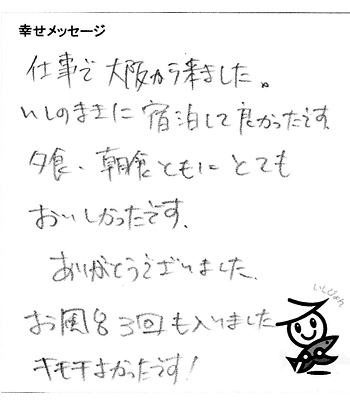 幸せメッセージ
仕事で大阪から来ました。
いしのまきに宿泊して良かったです。
夕食、朝食ともにとても
おいしかったです。
ありがとうございました。
いしぴょん
お風呂3回も入りました
キモチよかったです!